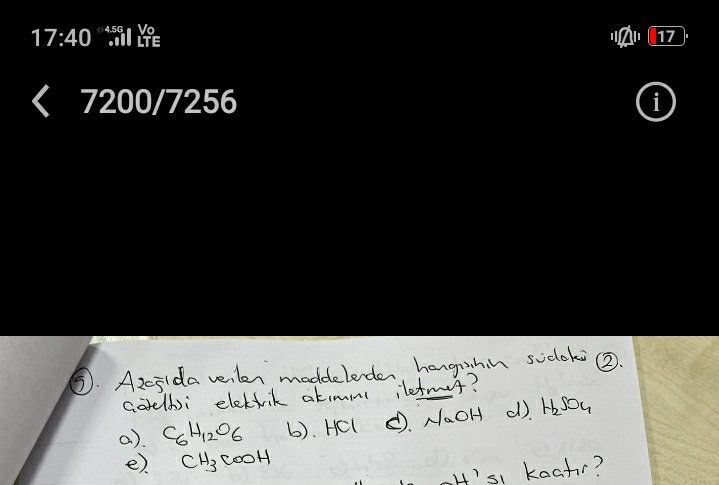 17:40 4.5G Vo LTE 17
7200/7256
5). Aşağıda verilen maddelerden hangisinin sudaki 2).
çözeltisi elektrik akımını iletmez?
a). C6H12O6 b). HCl c). NaOH d). H2SO4
e) CH3COOH
pH'sı kaçtır?